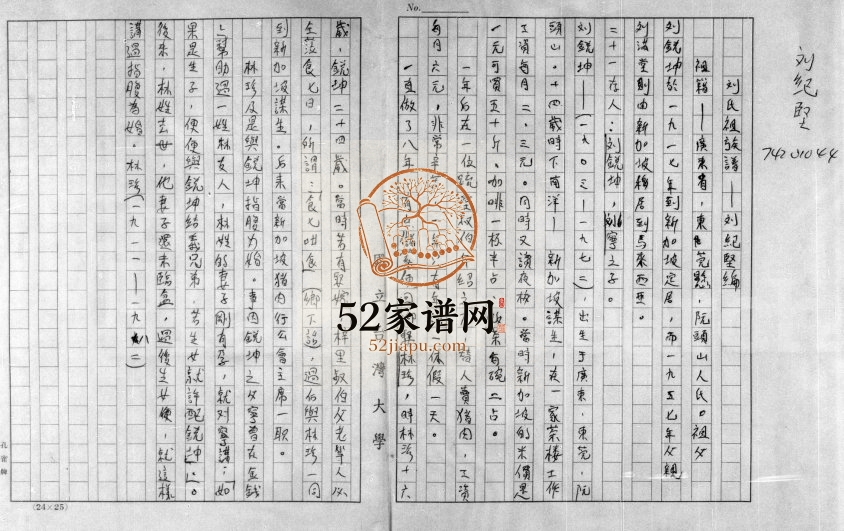 No.
刘紀堅
74201044
刘氏祖族譜——刘紀堅編
祖籍——廣東省，東莞縣，阮頭山人氏。祖父
刘銳坤於一九一七年到新加坡定居，而一九五七年父親
刘滿堂則由新加坡移居到馬來西亞。
二十一存人：刘銳坤，刘寧之子。
刘銳坤——（一九〇三——一九七二），出生于廣東，東莞，阮
頭山。十四歲時下南洋——新加坡謀生，在一家茶樓工作
工資每月二、三元。同時又讀夜校。當時新加坡的米價是
一元可買五十斤。咖啡一杯半占，炒菜每碗二占。
一年后在一位疏堂叔伯紹 替人賣猪肉，工資
每月六元，非常辛 一休假一天。
一直做了八年 儲 便回 娶林珍，時林珍十六
歲，銳坤二十四歲。當時若有娶媳 梓里叔伯父老舉人必
全蒞食七日，所謂：（食七咁食）（鄉下話），過后與林珍一同
到新加坡謀生。后來當新加坡猪肉行公會主席一職。
林珍及是與銳坤指腹为婚。事因銳坤之父寧曾在金錢
上幫助過一姓林友人，林姓的妻子剛有孕，就对寧講：如
果是生子，便便與銳坤結義兄弟，若生女就許配銳坤
後來，林姓去世，他妻子還未臨盆，過後生女便，就這樣
講過指腹為婚。林珍（一九一一——一九八二）
國立臺灣大學
(24×25)
52家谱网
52jiapu.com